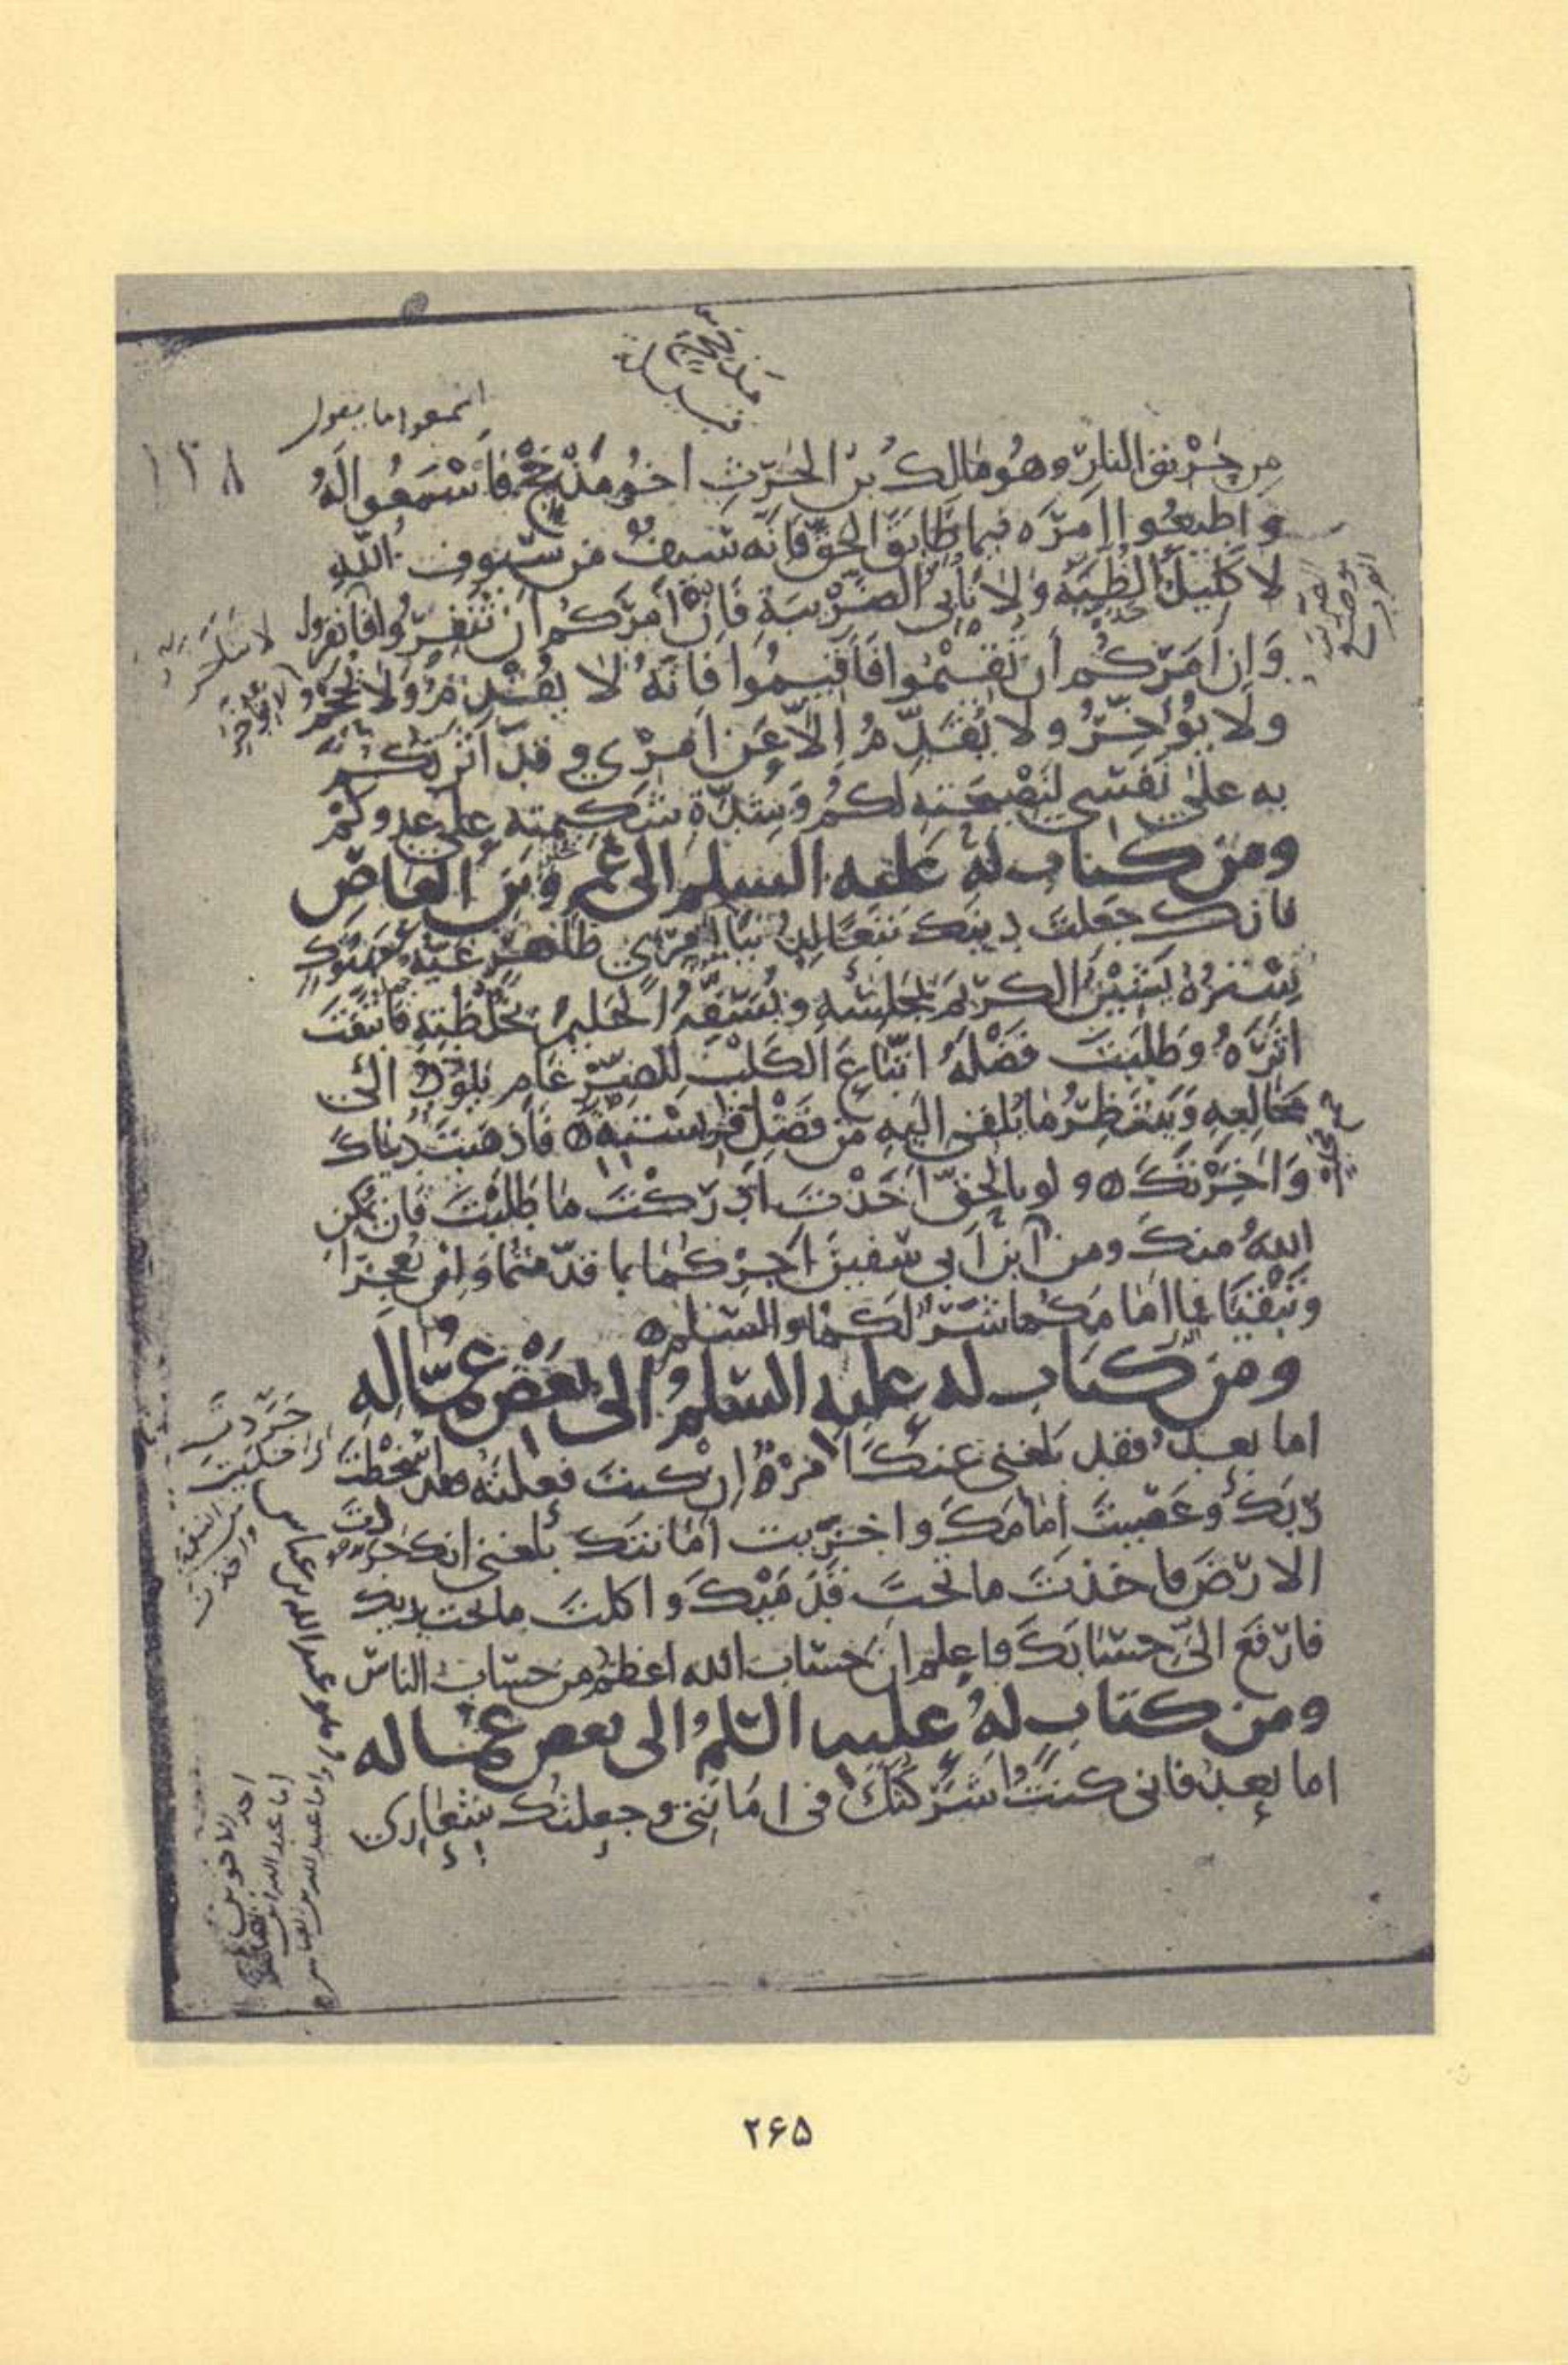 اسمعوا ما يقول
١٣٨
مِن حَرْيق النارِ وهُو مٰالكُ بن الحٰرثِ اخُو مَذْحَجٍ فَاسْمَعُوا لَهُ
و اطيعُوا امرَه فيما طَابَقَ الحقَّ فَانَّه سَيفٌ من سُيُوفِ اللهِ
لا كَليلُ الظُبَةِ وَلا نَابِى الضَّرْيبَةِ فَاِنْ امَرَكُم اَنْ تَنْفِرُوا فانفروا
وَاِن اَمَرَكُم اَن تُقيْمُوا فَاَقيمُوا فَانَّهُ لا يُقْدِمُ وَلا يُحْجِمُ
ولا يُؤَخِّرُ ولا يُقَدِّمُ اِلّا عَن اَمرْى و قد اٰثَرتكُم
به علىٰ نَفسى لنَصْيحَتِه لكُم وَشِدَّةِ شَكيمتِه على عدوكُمْ
ومن كتاب له عليه السلم الى عَمروِ بنِ العَاصِ
فانك جَعلتَ دينك تَبَعًا لِدُنيَا امرئٍ ظاهرٍ غَيُّهُ مَهتوكٍ
سِتْرُهُ يَشيْنُ الكريَم بمَجلسِه ويُسَفِّهُ الحَليمَ بخُلْطَتِهِ فَاتَّبَعْتَ
اثَرَهُ وَطلَبتَ فَضْلَهُ اتّبَاعَ الكَلْبِ لِلضِّرْغَامِ يَلوُذُ الىٰ
مَخَالِبِهِ وَيَنتَظِرُ مٰا يُلقى اليه من فَضْلِ فَريسَتِهِ فَاَذهَبتَ دُنياكَ
وَاٰخِرَتَكَ ولو بالحقِّ اَخَذْتَ ادْرَكْتَ مٰا طَلَبْتَ فَان يُمكِنِ
اللهُ منكَ ومن ابنِ اَبى سُفين اَجزِكمٰا بما قدّمتُمٰا وَاِن تُعجِزا
وَتَبْقَيَا فما امٰامكما شَرٌ لكُمٰا والسلم
ومن كتاب له عليه السلمُ الى بَعْضِ عُمّالِهِ
اما بعدُ فقد بَلغنى عَنكَ امْرٌ اِن كنتَ فعلتَهُ فقد اسْخَطْتَ
رَبَكَ وعَصَيتَ اِمٰامَكَ واخزيت اَمانتَك بلغنى انك جردت
الارضَ فاخذتَ ما تحتَ قَدَمَيْكَ وَاكلتَ ما تحت يديك
فارفَع الىَّ حِسابَكَ واعلم انَّ حسابَ الله اعظمُ من حسابِ الناس
ومن كتابٍ لهُ عليه السّلمُ الى بعض عمّاله
اما بعدُ فانى كنتُ اَشرَكتُكَ فى امَانتى وجعلتك شِعٰارى
٢۶۵